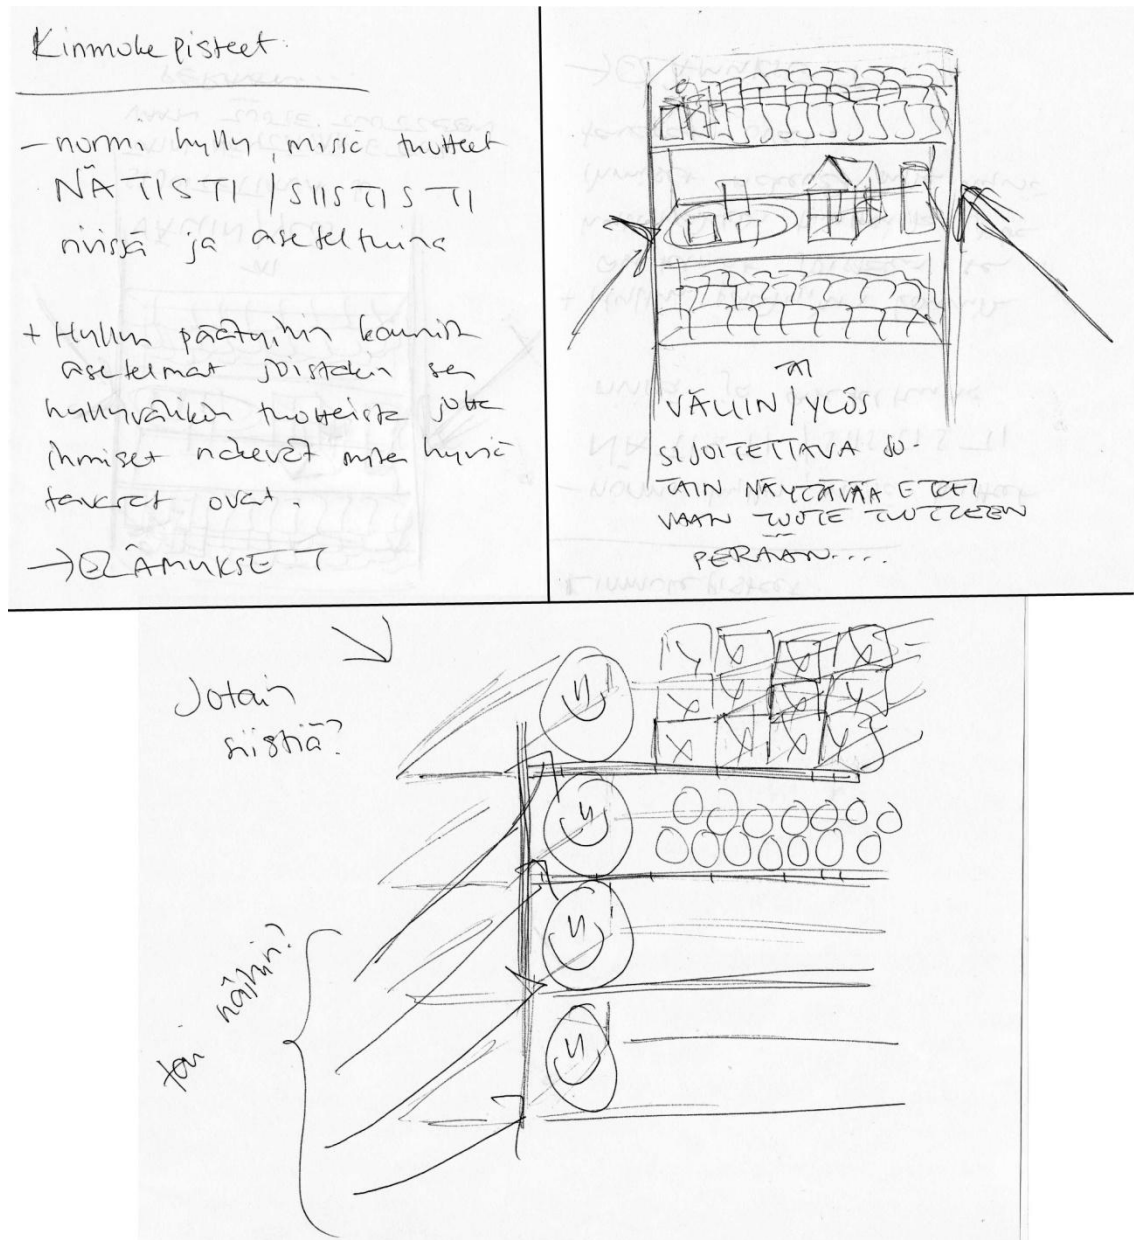 Kiinnoke pisteet:
- normi hylly, missä tuotteet
NÄTISTI / SIISTISTI
rivissä ja aseteltuina
+ Hyllyn päätyihin kauniit
asetelmat joistakin sen
hyllyvälikön tuotteista jotta
ihmiset näkevät miten hyviä
tavarat ovat.
→ ELÄMYKSET
VÄLIIN / YLÖS
SIJOITETTAVA JO-
TAIN NÄYTÄVÄÄ ETTEI
VAAN TUOTE TUOTTEEN
PERÄÄN...
Jotain
siistiä?
tai näihin?